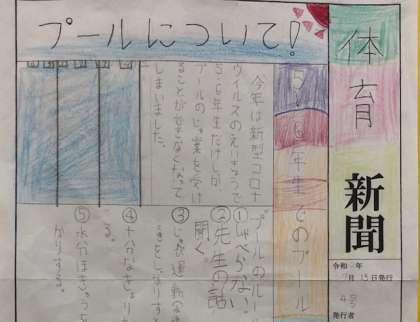 体育
新聞
令和2年
月15日発行
4号
発行者
プールについて!
5・6年生でのプール
今年は新型コロナ
ウイルスのえいきょうで
5・6年生だけしか
プールのじゅ業を受け
ることができなくなって
しまいました。
プールのルー
①しゃべらない
②先生の話
聞く
③じゅん備運動
きとしなりすと
④十分なきょり
る。
⑤水分ほきゅう
かりする。